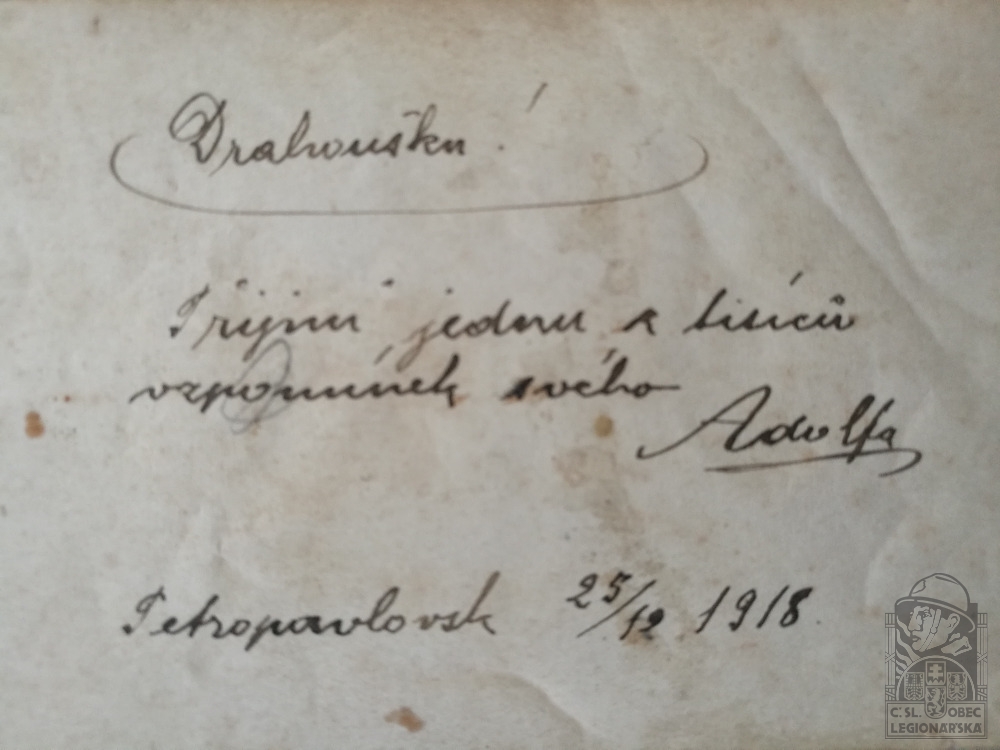 Drahoušku!
Přijmi jednu z tisíců
vzpomínek svého
Adolfa
Petropavlovsk 25/12 1918.
Č.SL. OBEC
LEGIONÁŘSKÁ